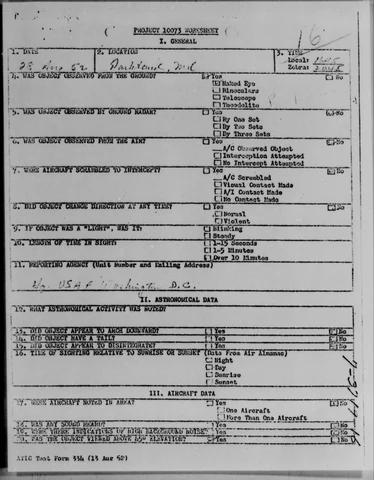 PROJECT 10073 WORKSHEET
16
I. GENERAL
1. DATE
2. LOCATION
3. TIME
Local:
Zebra:
4. WAS OBJECT OBSERVED FROM THE GROUND? Yes No
Naked Eye
Binoculars
Telescope
Theodolite
5. WAS OBJECT OBSERVED BY GROUND RADAR? Yes No
By One Set
By Two Sets
By Three Sets
6. WAS OBJECT OBSERVED FROM THE AIR? Yes No
A/C Observed Object
Interception Attempted
No Intercept Attempted
7. WERE AIRCRAFT SCRAMBLED TO INTERCEPT? Yes No
A/C Scrambled
Visual Contact Made
A/I Contact Made
No Contact Made
8. DID OBJECT CHANGE DIRECTION AT ANY TIME? Yes No
Normal
Violent
9. IF OBJECT WAS A "LIGHT", WAS IT: Blinking
Steady
10. LENGTH OF TIME IN SIGHT: 1-15 Seconds
1-5 Minutes
Over 10 Minutes
11. REPORTING AGENCY (Unit Number and Mailing Address)
USAF Washington D.C.
II. ASTRONOMICAL DATA
12. WHAT ASTRONOMICAL ACTIVITY WAS NOTED?
13. DID OBJECT APPEAR TO ARCH DOWNWARD? Yes No
14. DID OBJECT HAVE A TAIL? Yes No
15. DID OBJECT APPEAR TO DISINTEGRATE? Yes No
16. TIME OF SIGHTING RELATIVE TO SUNRISE OR SUNSET (Data From Air Almanac)
Night
Day
Sunrise
Sunset
III. AIRCRAFT DATA
17. WERE AIRCRAFT NOTED IN AREA? Yes No
One Aircraft
More Than One Aircraft
18. WAS ANY SOUND HEARD? Yes No
19. WERE THERE INDICATIONS OF HIGH BACKGROUND NOISE? Yes No
20. WAS THE OBJECT VIEWED ABOVE 45° ELEVATION? Yes No
ATIC Test Form 334 (13 Aug 52)